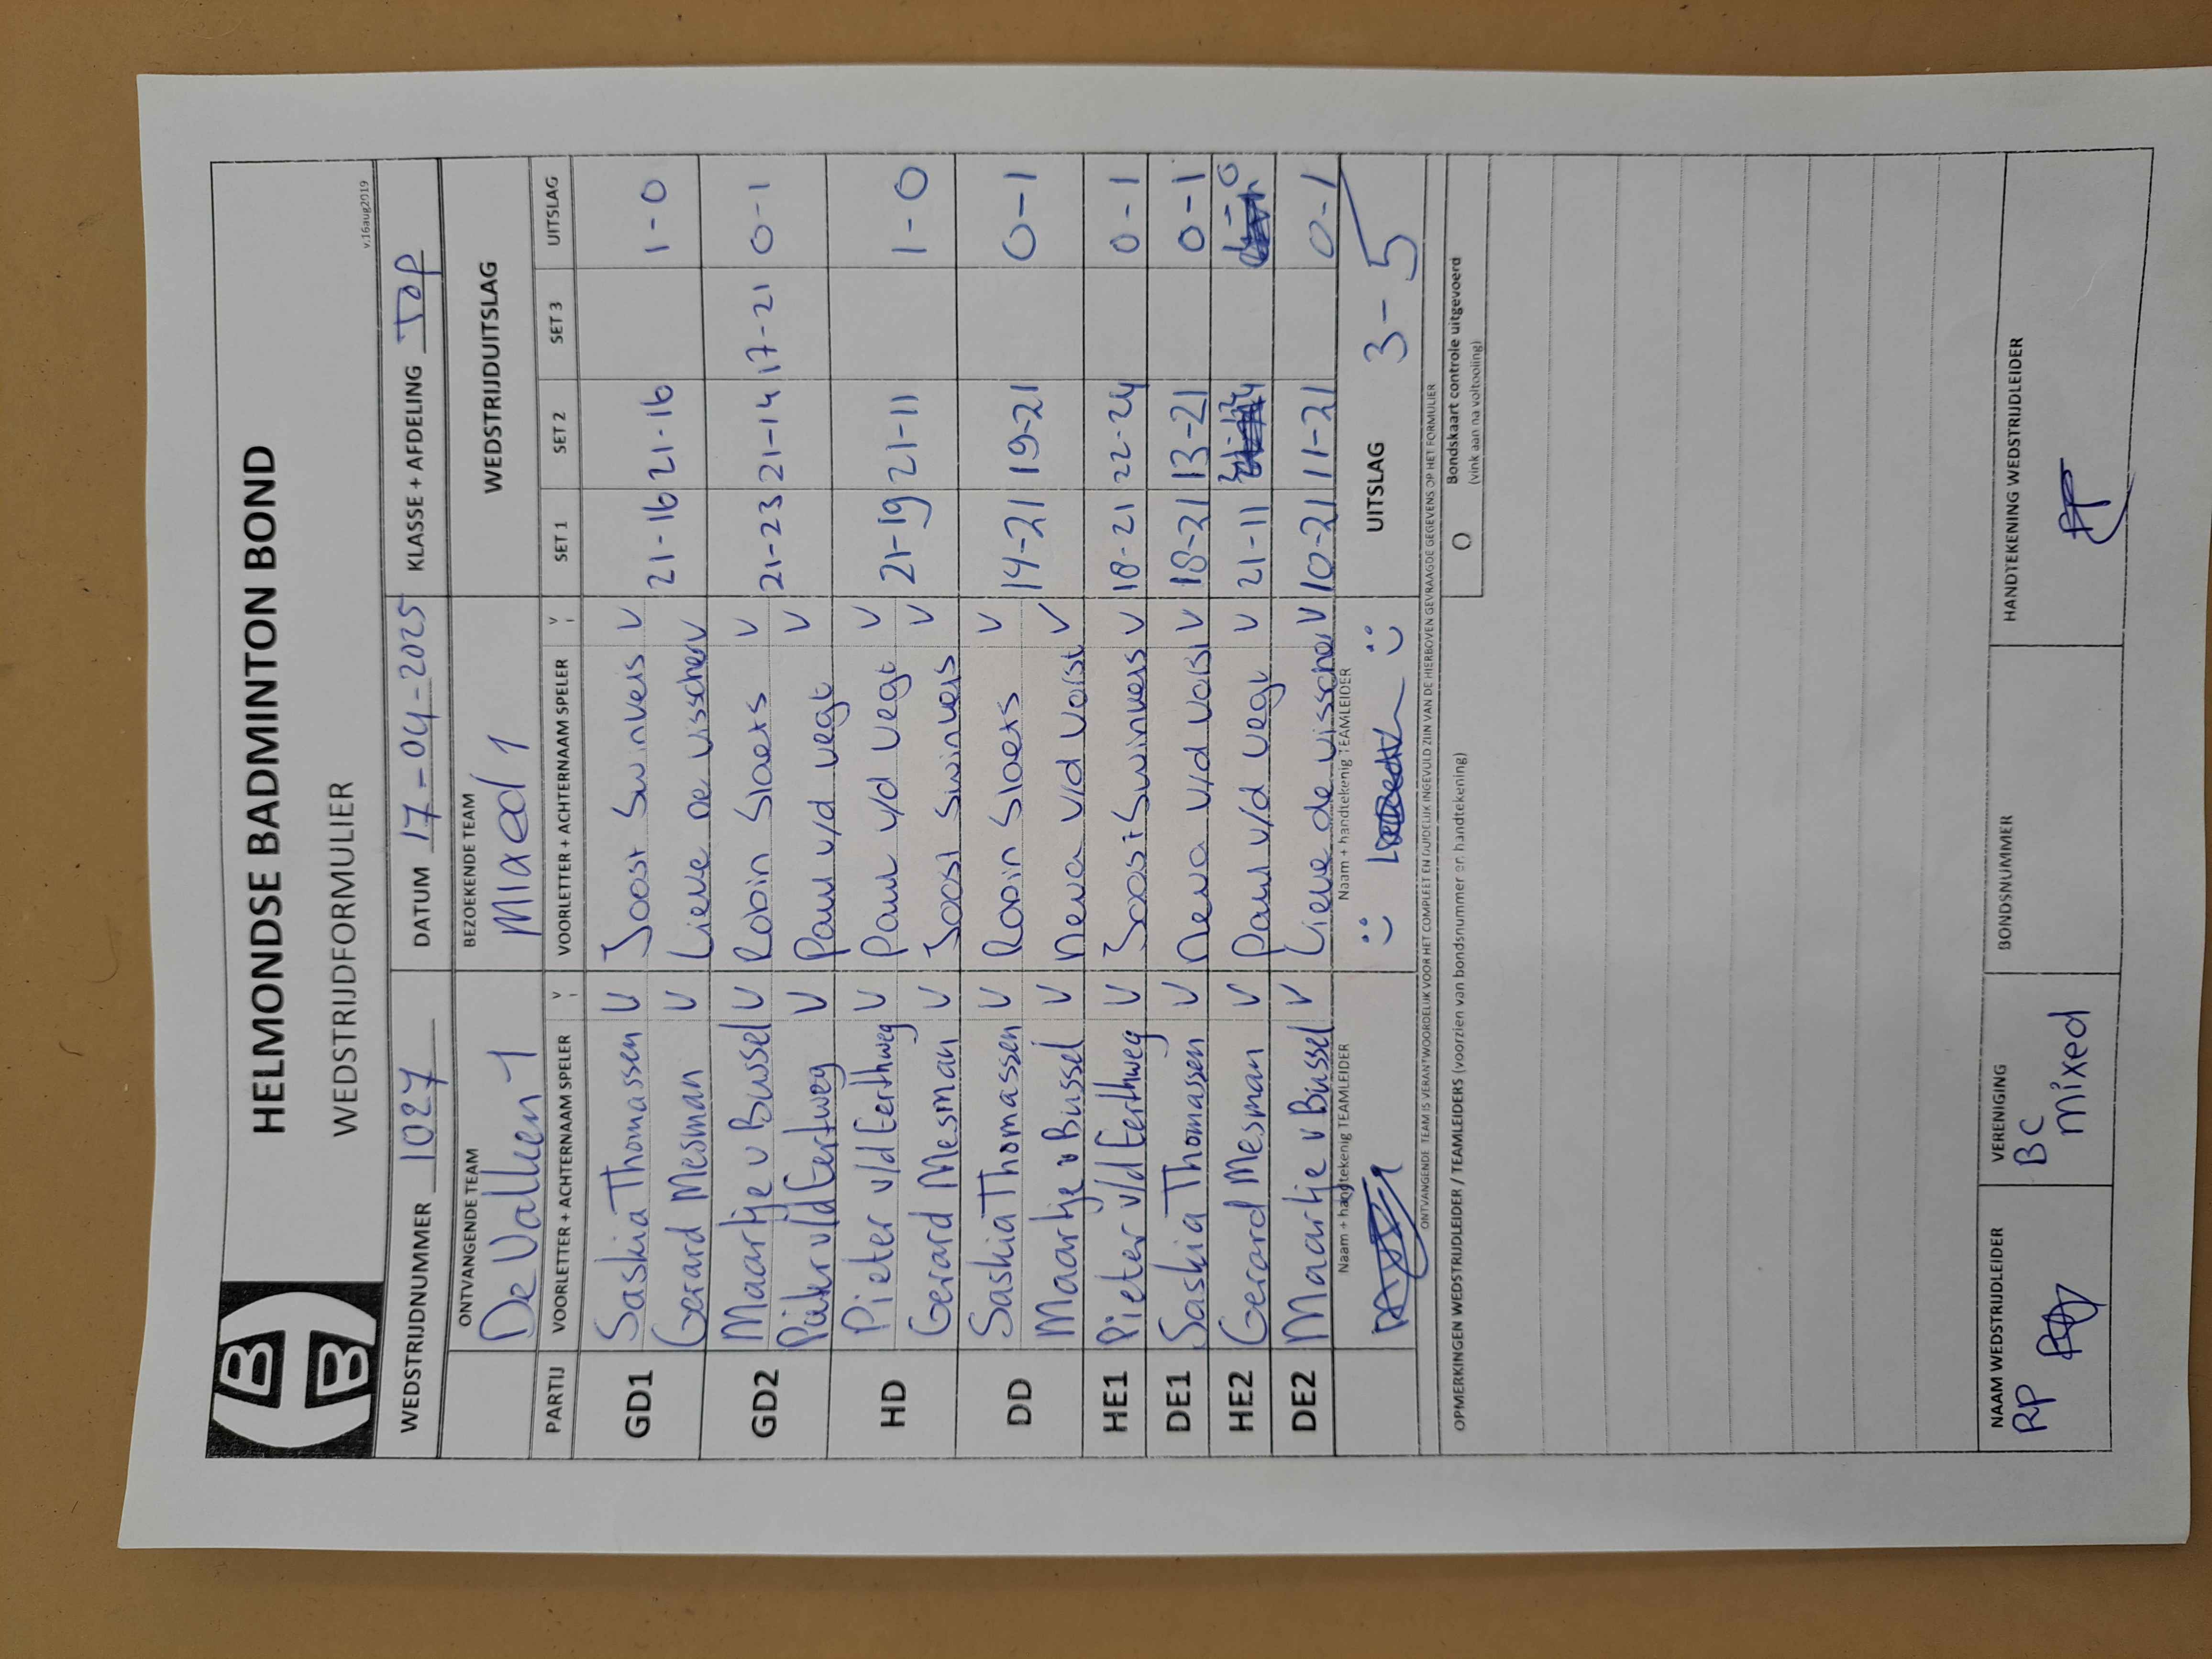 HELMONDSE BADMINTON BOND
WEDSTRIJDFORMULIER
v.16aug2019
WEDSTRIJDNUMMER 1027 DATUM 17-04-2025 KLASSE + AFDELING TOP
ONTVANGENDE TEAM BEZOEKENDE TEAM WEDSTRIJDUITSLAG
De Valken 1 Mixed 1
PARTIJ VOORLETTER + ACHTERNAAM SPELER V VOORLETTER + ACHTERNAAM SPELER V SET 1 SET 2 SET 3 UITSLAG
GD1 Saskia Thomassen V Joost Swinkels V 21-16 21-16 1-0
Gerard Mesman V Lieve De Visscher V
GD2 Maartje v Bussel V Robin Slaets V 21-23 21-14 17-21 0-1
Pieter v/d Eertweg V Paul v/d Vegt V
HD Pieter v/d Eerthweg V Paul v/d Vegt V 21-19 21-11 1-0
Gerard Mesman V Joost Swinkels V
DD Saskia Thomassen V Robin Slaets V 14-21 19-21 0-1
Maartje v Bussel V Neva v/d Vorst V
HE1 Pieter v/d Eerthweg V Joost Swinkels V 18-21 22-24 0-1
DE1 Saskia Thomassen V Neva v/d Vorst V 18-21 13-21 0-1
HE2 Gerard Mesman V Paul v/d Vegt V 21-11
DE2 Maartje v Bussel V Lieve de Visscher V 10-21 11-21 0-1
Naam + handtekenig TEAMLEIDER Naam + handtekenig TEAMLEIDER UITSLAG 3-5
ONTVANGENDE TEAM IS VERANTWOORDELIJK VOOR HET COMPLEET EN DUIDELIJK INGEVULD ZIJN VAN DE HIERBOVEN GEVRAAGDE GEGEVENS OP HET FORMULIER
O Bondskaart controle uitgevoerd
(vink aan na voltooiing)
OPMERKINGEN WEDSTRIJDLEIDER / TEAMLEIDERS (voorzien van bondsnummer en handtekening)
NAAM WEDSTRIJDLEIDER VERENIGING BONDSNUMMER HANDTEKENING WEDSTRIJDLEIDER
RP BC
mixed